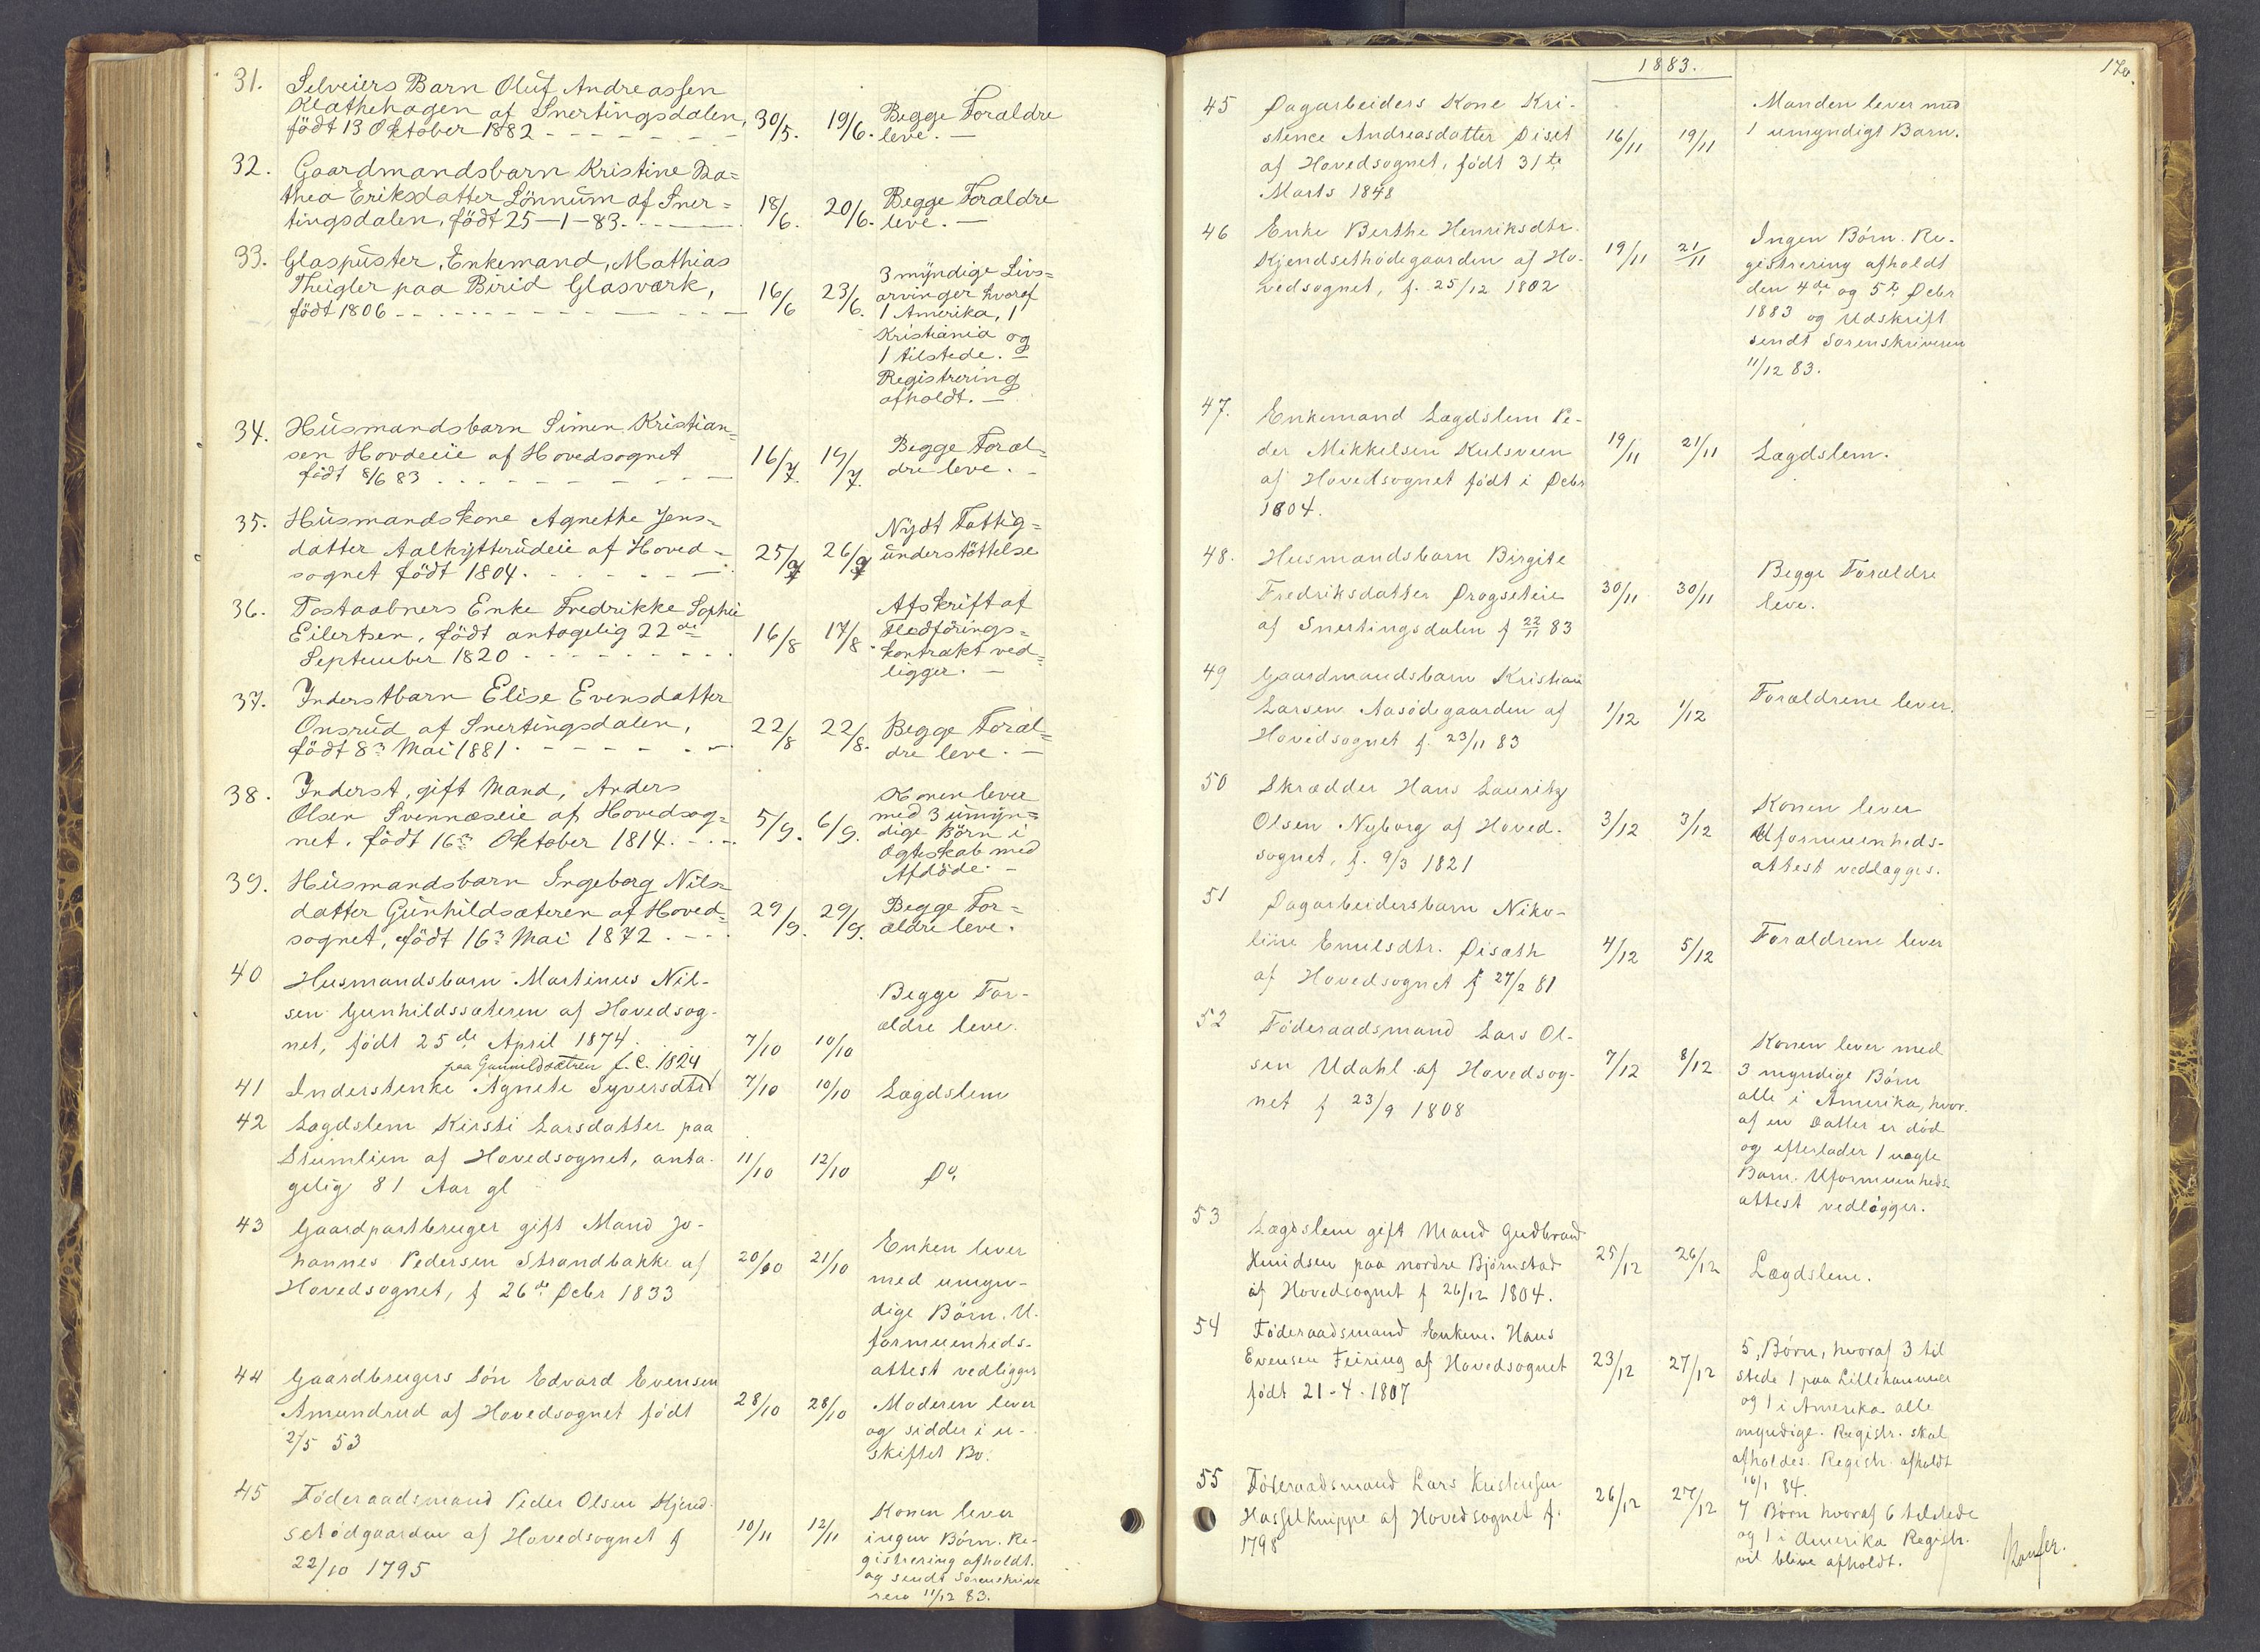 31. Selveiers Barn Oluf Andreassen
Klathehagen af Snertingsdalen,
födt 13 Oktober 1882 - - - - 30/5. 19/6. Begge Forældre
leve. —
32. Gaardmandsbarn Kristine Ma=
thea Eriksdatter Lönnum af Sner=
tingsdalen, födt 25-1-83. - - - 18/6. 20/6. Begge Forældre
leve. —
33. Glaspuster, Enkemand, Mathias
Theigler paa Birid Glasværk,
födt 1806 - - - - 16/6 23/6. 3 myndige Livs=
arvinger hvoraf
1 Amerika, 1
Kristiania og
1 tilstede. —
Registrering
afholdt. —
34. Husmandsbarn Simen Kristian=
sen Hovdeeie af Hovedsognet
födt 8/6 83 - - - - 16/7. 19/7. Begge Foræl=
dre leve. -
35. Husmandskone Agnethe Jens=
datter Aalkytterudeie af Hoved=
sognet födt 1804. - - - - 25/7 26/7 Nydt Fattig=
understöttelse
36. Postaabners Enke Fredrikke Sophie
Eilertsen, födt antagelig 22de
September 1820 - - - - 16/8 17/8. Afskrift af
Fledförings=
kontrakt ved=
ligger. —
37. Inderstbarn Elise Evensdatter
Onsrud af Snertingsdalen,
födt 8de Mai 1881 - - - - 22/8 22/8. Begge Foræl=
dre leve. —
38. Inderst, gift Mand, Anders
Olsen Svennæseie af Hovedsog=
net. födt 16de Oktober 1814. - - - 5/9. 6/9. Konen lever
med 3 umyn=
dige Börn i
Ægteskab med
Afdöde. -
39. Husmandsbarn Ingeborg Nils=
datter Gunhildsæteren af Hoved=
sognet, födt 16de Mai 1872. - - - 29/9. 29/9. Begge For=
ældre leve.
40 Husmandsbarn Martinus Nil-
sen Gunhildssæteren af Hovedsog-
net, födt 25de April 1874. 7/10 10/10 Begge For-
ældre leve.
paa Gunnildsætren f. C. 1824
41 Inderstenke Agnete Syversdtr 7/10 10/10 Lægdslem
42 Lægdslem Kirsti Larsdatter paa
Stumlien af Hovedsognet, anta-
gelig 81 Aar gl 11/10 12/10 Do.
43 Gaardpartbruger gift Mand Jo-
hannes Pedersen Strandbakke af
Hovedsognet, f 26de Debr 1833 20/10 21/10 Enken lever
med umyn-
dige Börn. U-
formuenheds-
attest vedligger
44 Gaardbrugers Sön Edvard Evensen
Amundrud af Hovedsognet födt
2/5 53 28/10 28/10 Moderen lever
og sidder i u-
skiftet Bo.
45 Föderaadsmand Peder Olsen Skjend-
setödgaarden af Hovedsognet f
22/10 1795 10/11 12/11 Konen lever
ingen Börn. Re-
gistrering afholdt
og sendt Sorenskrive
ren 11/12 83.
1883. 170.
45 Dagarbeiders Kone Kri-
stence Andreasdatter Diset
af Hovedsognet, födt 31te
Marts 1848 16/11 19/11 Manden lever med
1 umyndigt Barn.
46 Enke Berthe Henriksdtr.
Skjendsethödegaarden af Ho-
vedsognet, f. 25/12 1802 19/11 21/11 Ingen Börn. Re-
gistrering afholdt
den 4de og 5te Debr
1883 og Udskrift
sendt Sorenskriveren
11/12 83.
47. Enkemand Lægdslem Pe-
der Mikkelsen Kulsveen
af Hovedsognet födt i Debr
1804. 19/11 21/11 Lægdslem.
48. Husmandsbarn Birgite
Fredriksdatter Dragseteie
af Snertingsdalen f 22/11 83 30/11 30/11 Begge Forældre
leve.
49 Gaardmandsbarn Kristian
Larsen Aasödegaarden af
Hovedsognet f. 23/11 83 1/12 1/12 Forældrene lever.
50 Skrædder Hans Lauritz
Olsen Nyborg af Hoved-
sognet, f. 9/3 1821 3/12 3/12 Konen lever
Uformuenheds-
attest vedlægges.
51 Dagarbeidersbarn Niko-
line Emilsdtr. Disæth
af Hovedsognet f 27/2 81 4/12 5/12 Forældrene lever
52 Föderaadsmand Lars Ol-
sen Udahl af Hovedsog-
net f 23/9 1808 7/12 8/12 Konen lever med
3 myndige Börn
alle i Amerika, hvor-
af en Datter er död
og efterlader 1 uægte
Barn. Uformuenheds-
attest vedlägger.
53 Lægdslem gift Mand Gudbrand
Knudsen paa nordre Björnstad
af Hovedsognet f 26/12 1804. 25/12 26/12 Lægdslem.
54 Föderaadsmand Enkem. Hans
Evensen Feiring af Hovedsognet
födt 21-4-1807 23/12 27/12 5, Börn, hvoraf 3 til
stede 1 paa Lillehammer
og 1 i Amerika alle
myndige. Registr. skal
afholdes. Registr. afholdt
16/1 84.
55 Föderaadsmand Lars Kristensen
Hasselknippe af Hovedsognet f.
1798 26/12 27/12 7 Börn hvoraf 6 tilstede
og 1 i Amerika Registr.
vil blive afholdt.